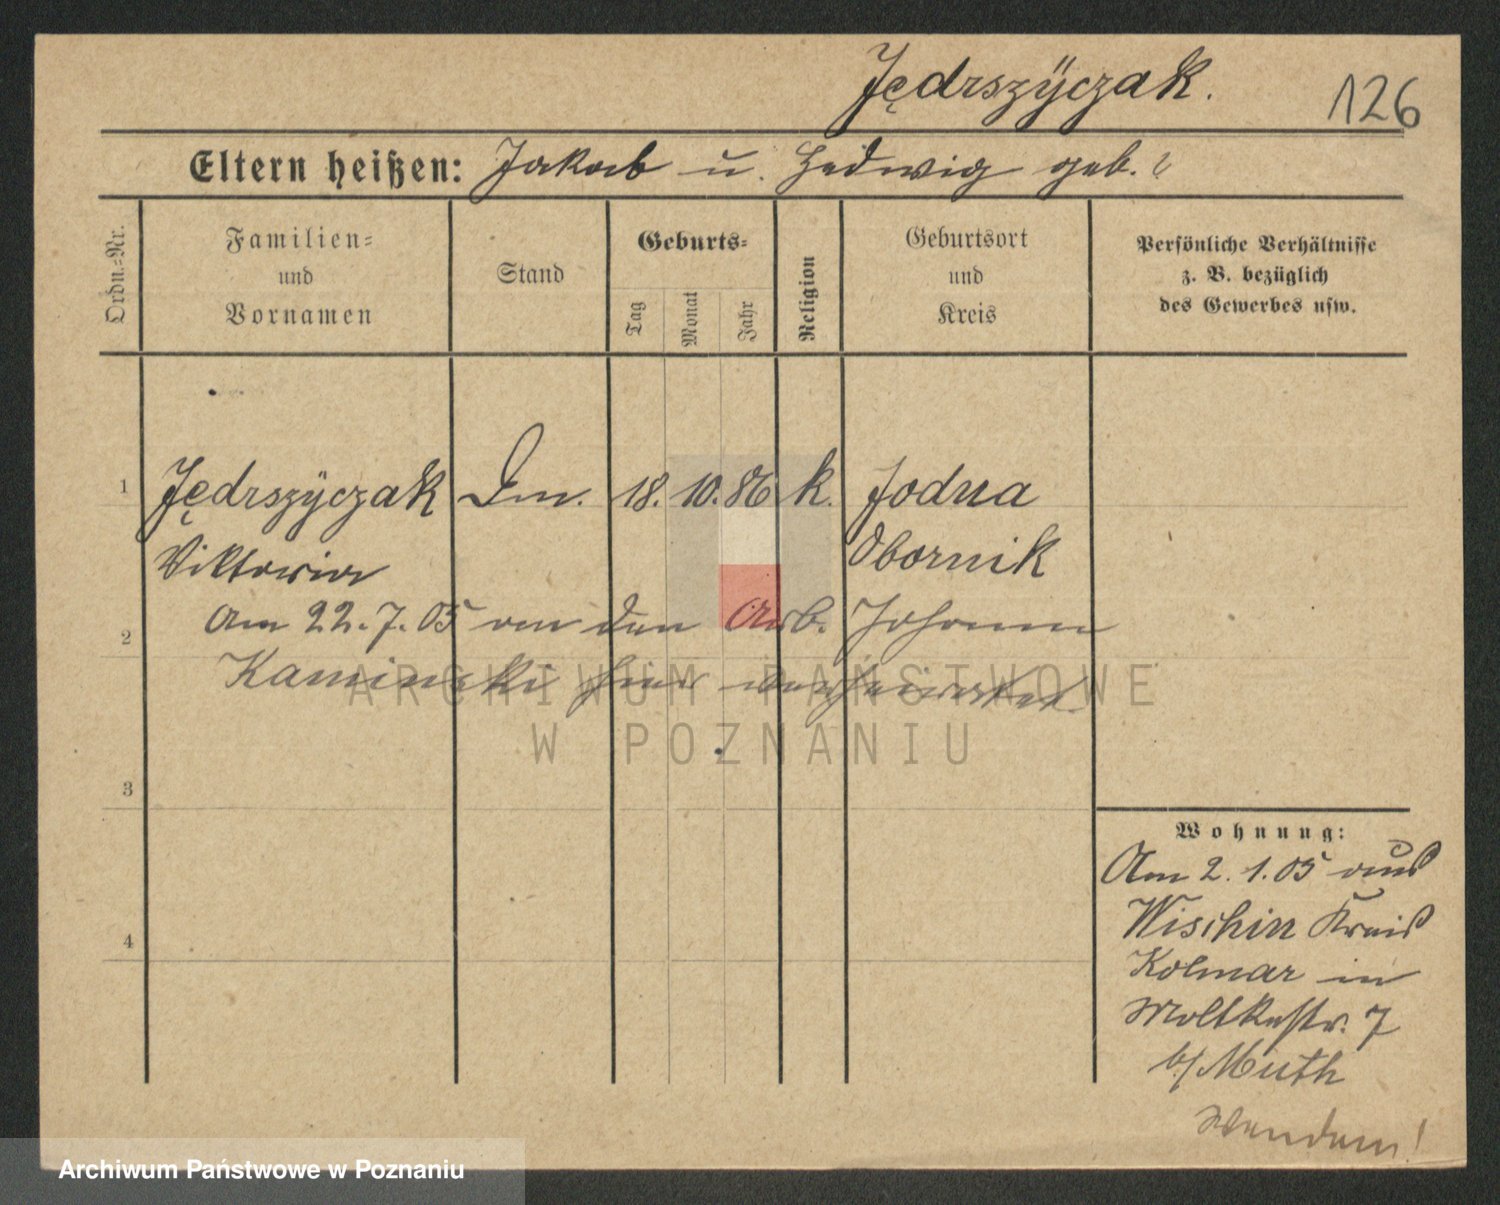 Jędrszÿczak.
126
Eltern heißen: Jakob u. Hedwig geb. ?
Ordn.-Nr.
Familien-
und
Vornamen
Stand
Geburts-
Tag
Monat
Jahr
Religion
Geburtsort
und
Kreis
Persönliche Verhältnisse
z. B. bezüglich
des Gewerbes usw.
1 Jędrszÿczak Dm. 18. 10. 86 k. Jodna
Viktoria Obornik
2 Am 22.7.05 von den Arb. Johann
Kaminski hier verheiratet
3
4
Wohnung:
Am 2.1.05 aus
Wischin Kreis
Kolmar in
Moltkestr. 7
b/ Muth
Wenden!
ARCHIWUM PAŃSTWOWE
W POZNANIU
Archiwum Państwowe w Poznaniu